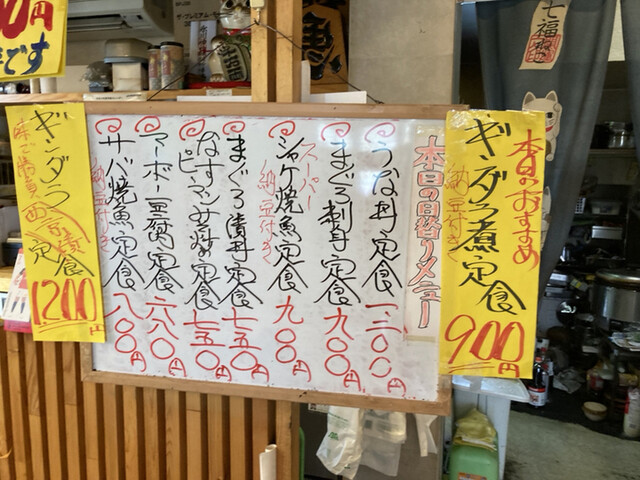 本日のおすすめ
ギンダラ煮定食
納豆付き
900円
本日の日替りメニュー
うな丼定食 一、二〇〇円
まぐろ刺丼定食 九〇〇円
スーパー
シャケ焼魚定食 九〇〇円
納豆付き
まぐろ漬丼定食 七五〇円
なすピーマンみそ炒め定食 七五〇円
マーボー豆腐定食 六八〇円
サバ焼魚定食 八〇〇円
納豆付き
ギンダラ
定食
1200円
円
です
七福